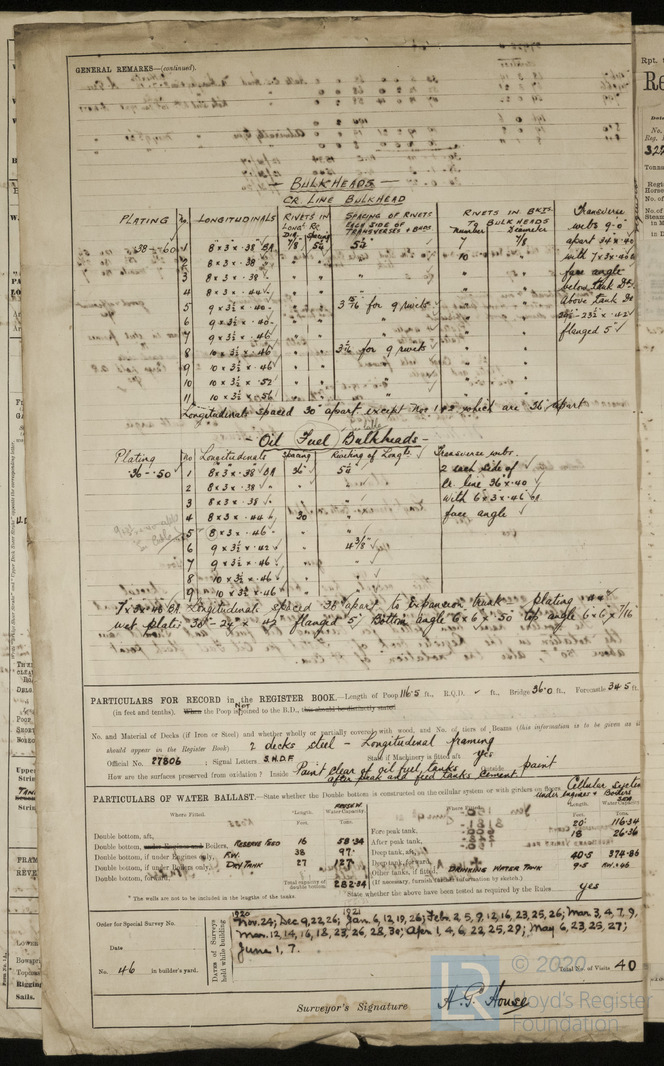 GENERAL REMARKS—(continued).
— BULKHEADS —
CR LINE BULKHEAD
PLATING No. LONGITUDINALS RIVETS IN LONGL RC DIA. SPACING SPACING OF RIVETS EACH SIDE OF TRANSVERSES & BHDS RIVETS IN BKTS TO BULKHEADS Number Diameter Transverse
webs 9-0"
.38-.60 1 8 x 3 x .38 BA 7/8 5¼ 5¼ 7 7/8 apart 34 x .40
2 8 x 3 x .38 " " " 10 " with 7 x 3 x .40 BA
3 8 x 3 x .38 " " " " " face angle
4 8 x 3 x .44 " " " " below Tank Dk.
5 9 x 3½ x .40 " " 3 5/16 for 9 rivets " " Above Tank Dk
6 9 x 3½ x .40 " " " " "
7 9 x 3½ x .46 " " " " " flanged 5"
8 10 x 3½ x .46 " " 3 5/16 for 9 rivets " "
9 10 x 3½ x .46 " " " " "
10 10 x 3½ x .52 " " " " "
11 10 x 3½ x .56 " " " " "
Longitudinals spaced 30" apart except Nos 1 & 3 which are 36" apart
- Oil Fuel Bulkheads -
Plating No Longitudinals Spacing Riveting of Longls Transverse webs.
.36-.50 1 8 x 3 x .38 BA 36" 5¼ 2 each side of
2 8 x 3 x .38 " " Cr. line 36 x .40
3 8 x 3 x .38 " " with 6 x 3 x .46 BA
4 8 x 3 x .44 30 " face angle
5 8 x 3 x .46 " "
6 9 x 3½ x .42 " 4 3/8
7 9 x 3½ x .46 " "
8 10 x 3½ x .46 " "
9 10 x 3½ x .46 " "
7 x 3 x .40 BA Longitudinals spaced 38" apart to expansion trunk plating .44"
web plates 30" - 24" x .42 flanged 5" Bottom angle 6 x 6 x .50 top angle 6 x 6 x 7/16
PARTICULARS FOR RECORD in the REGISTER BOOK.—Length of Poop 116.5 ft., R.Q.D. - ft., Bridge 36.0 ft., Forecastle 34.5 ft.
(in feet and tenths). When the Poop is Not joined to the B.D., this should be distinctly stated
No. and Material of Decks (if Iron or Steel) and whether wholly or partially covered with wood, and No. of tiers of Beams (this information is to be given as it
should appear in the Register Book) 2 decks steel — Longitudinal framing
Official No. 27806 ; Signal Letters S.N.D.F State if Machinery is fitted aft yes
How are the surfaces preserved from oxidation? Inside Paint clear of oil fuel tanks Outside paint
after peak and feed tanks cement
PARTICULARS OF WATER BALLAST.—State whether the Double bottom is constructed on the cellular system or with girders on floors Cellular System
under Engines & Boilers
Where Fitted. *Length. Feet. Water-Capacity. Tons. Where Fitted. *Length. Feet. Water-Capacity. Tons.
Double bottom, aft, Fore peak tank, 20 116.34
Double bottom, under Engines and Boilers, RESERVE FEED 16 58.34 After peak tank, 18 26.36
Double bottom, if under Engines only, R.W. 38 97. Deep tank, aft,
Double bottom, if under Boilers only, DRY TANK 27 127. Deep tank, forward, 40.5 374.86
Double bottom, forward, Other tanks, if fitted, DRINKING WATER TANK 9.5
Total capacity of double bottom. 282.34 (If necessary, furnish further information by sketch.)
* The wells are not to be included in the lengths of the tanks. State whether the above have been tested as required by the Rules yes
Order for Special Survey No.
Date
No. 46 in builder's yard.
DATES of Surveys held while building
1920 1921
Nov. 24; Dec. 9, 22, 26; Jan. 6, 12, 19, 26; Feb. 2, 5, 9, 12, 16, 23, 25, 26; Mar. 3, 4, 7, 9,
Mar. 12, 14, 16, 18, 23, 26, 28, 30; Apr. 1, 4, 6, 22, 25, 29; May 6, 23, 25, 27;
June 1, 7.
Total No. of Visits 40
Surveyor's Signature H. G. House
© 2020
Lloyd's Register
Foundation